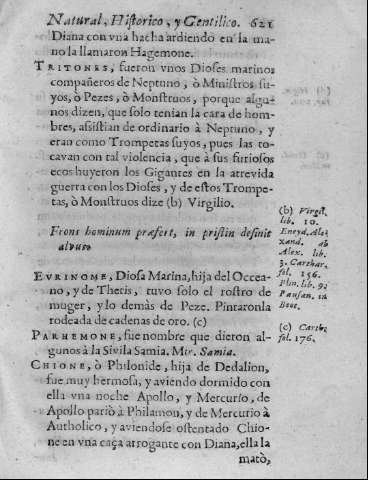 Natural, Historico, y Gentilico. 621
Diana con vna hacha ardiendo en la ma-
no la llamaron Hagemone.
TRITONES, fueron vnos Dioses marinos
compañeros de Neptuno, ò Ministros su-
yos, ò Pezes, ò Monstruos, porque algu-
nos dizen, que solo tenian la cara de hom-
bres, assistian de ordinario à Neptuno, y
eran como Trompetas suyos, pues las to-
cavan con tal violencia, que à sus furiosos
ecos huyeron los Gigantes en la atrevida
guerra con los Dioses, y de estos Trompe-
tas, ò Monstruos dize (b) Virgilio.
Frons hominum præfert, in pristin definit
alvus.
EVRINOME, Diosa Marina, hija del Occea-
no, y de Thetis, tuvo solo el rostro de
muger, y lo demàs de Peze. Pintaronla
rodeada de cadenas de oro. (c)
PARHEMONE, fue nombre que dieron al-
gunos à la Sivila Samia. Mir. Samia.
CHIONE, ò Philonide, hija de Dedalion,
fue muy hermosa, y aviendo dormido con
ella vna noche Apollo, y Mercurio, de
Apollo pariò à Philamon, y de Mercurio à
Autholico, y aviendose ostentado Chio-
ne en vna caça arrogante con Diana, ella la
matò,
(b) Virgil.
lib. 10.
Eneyd. Ale-
xand. ab
Alex. lib.
3. Carthar.
fol. 156.
Plin. lib. 9.
Pausan. in
Beot.
(c) Carth.
fol. 176.